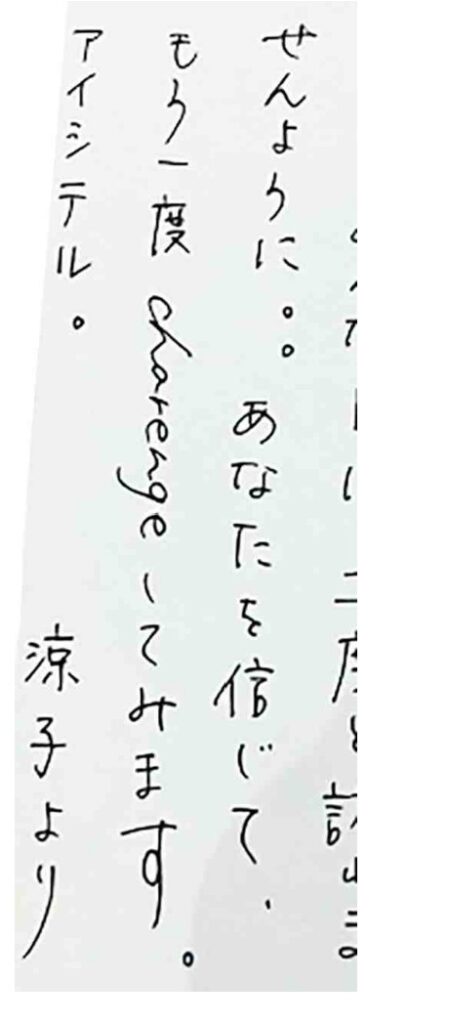 せんように。。あなたを信じて、
もう一度charengeしてみます。
アイシテル。 涼子より